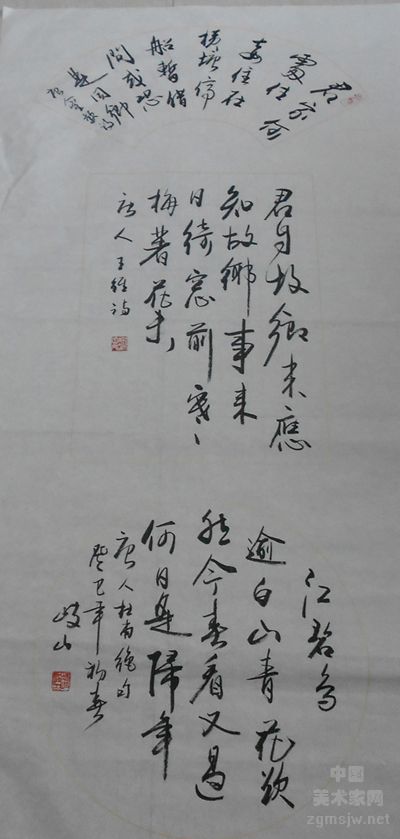 君家何
處住
妾住在
横塘停
船暫借
問或恐
是同鄉
君自故鄉来應
知故鄉事来
日綺窓前寒
梅著花未
唐人王維詩
江碧鳥
逾白山青花欲
然今春看又過
何日是歸年
唐人杜甫绝句
癸巳年初春
岐山
中国
美术家网
zgmsjw.net